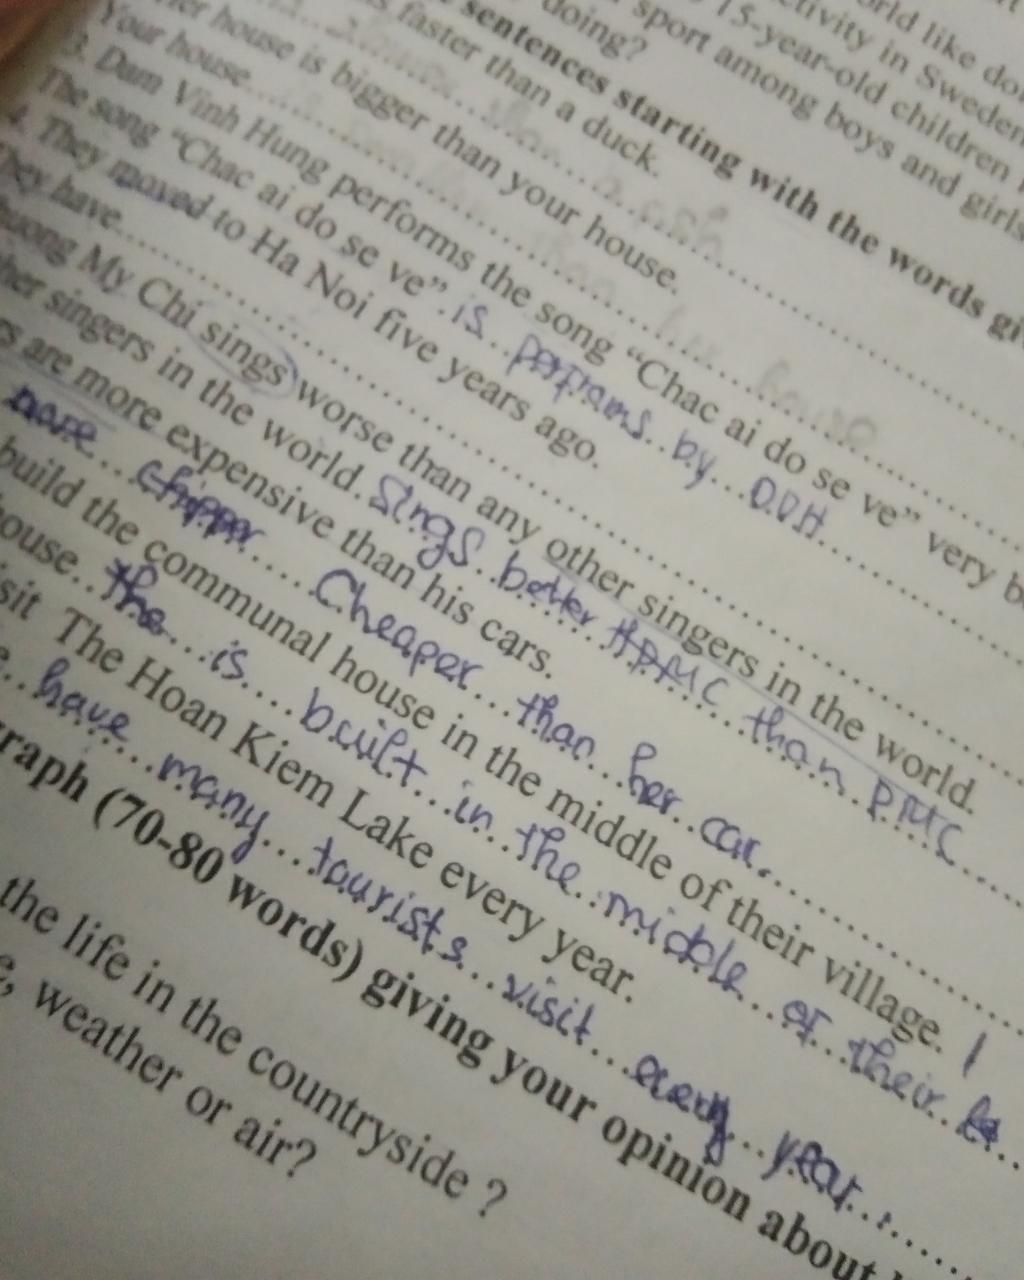 orld like do
ctivity in Sweden
15-year-old children
sport among boys and girls
doing?
sentences starting with the words gi
faster than a duck.
house is bigger than your house.
Your house
3. Dam Vinh Hung performs the song “Chac ai do se ve” very b
The song “Chac ai do se ve”. is by DVH
4. They moved to Ha Noi five years ago.
They have
uong My Chi sings worse than any other singers in the world.
her singers in the world. Sings better than PMC
rs are more expensive than his cars.
Cheaper than her car.
build the communal house in the middle of their village.
ouse. the is built in the middle of their
sit The Hoan Kiem Lake every year.
have many tourists visit every year
raph (70-80 words) giving your opinion about
the life in the countryside ?
e, weather or air?